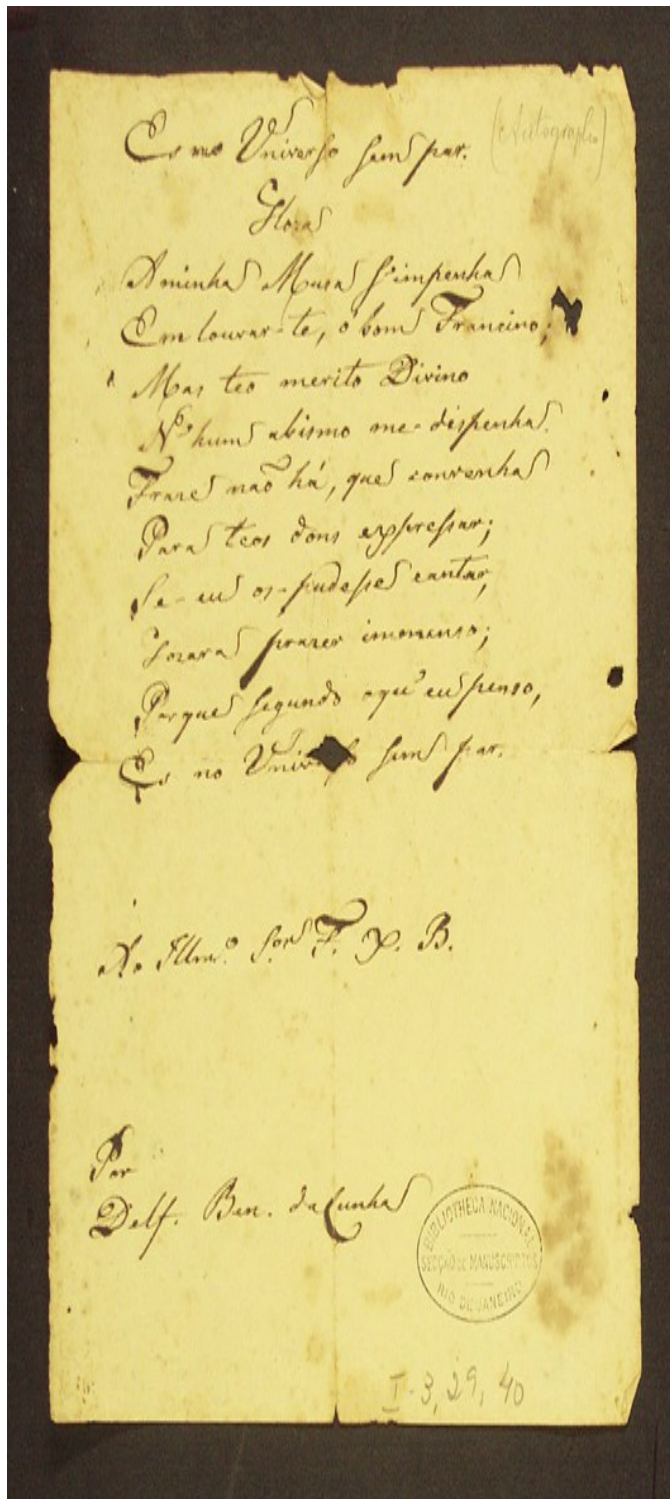 (Autographo)
Es no Universo sem par.
Gloza
A minha Musa s'impenha
Em louvar-te, ó bom Francino;
Mas teo merito Divino
N'hum abismo me-despenha.
Fraze não há, que convenha
Para teos dons expressar;
Se-eu os-pudesse cantar,
Gozara prazer immenso;
Porque segundo o qu'eu penso,
Es no Universo sem par.
Ao Illmo. Sor. F. X. B.
Por
Delf. Ben. da Cunha
BIBLIOTHECA NACIONAL
SECÇÃO DE MANUSCRIPTOS
RIO DE JANEIRO
I-3,29,40